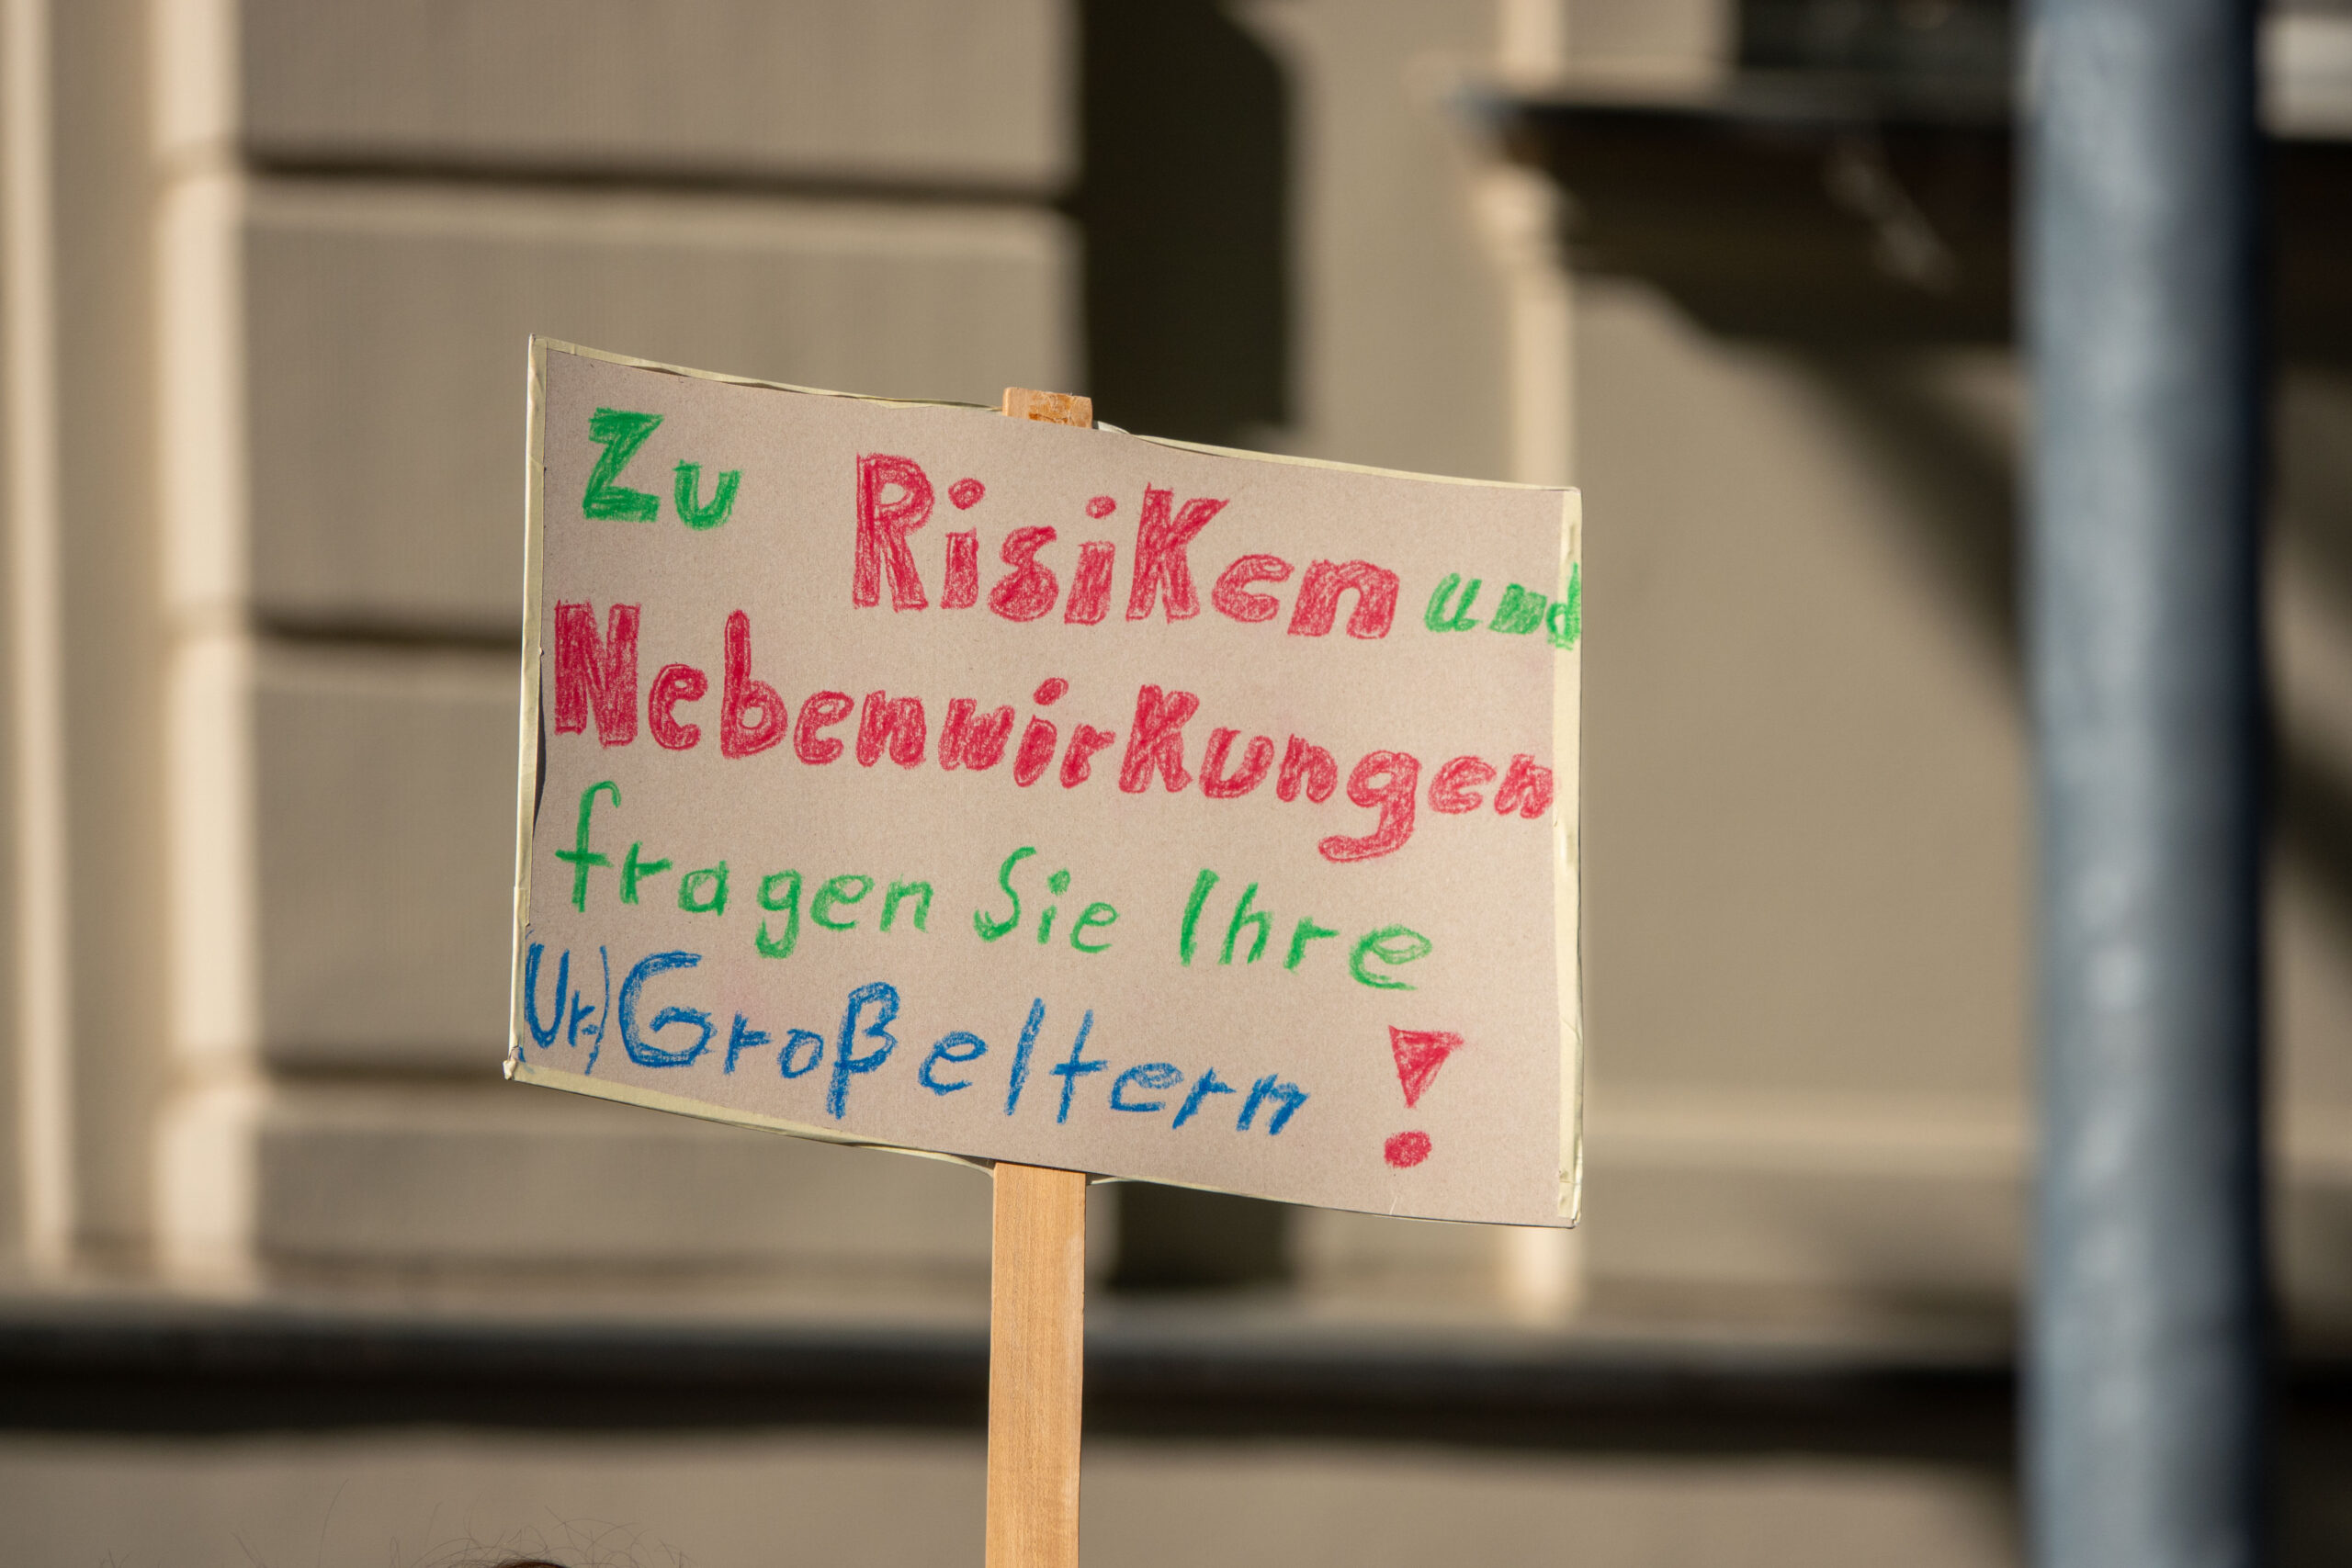 Zu Risiken und
Nebenwirkungen
fragen Sie Ihre
(Ur-)Großeltern!